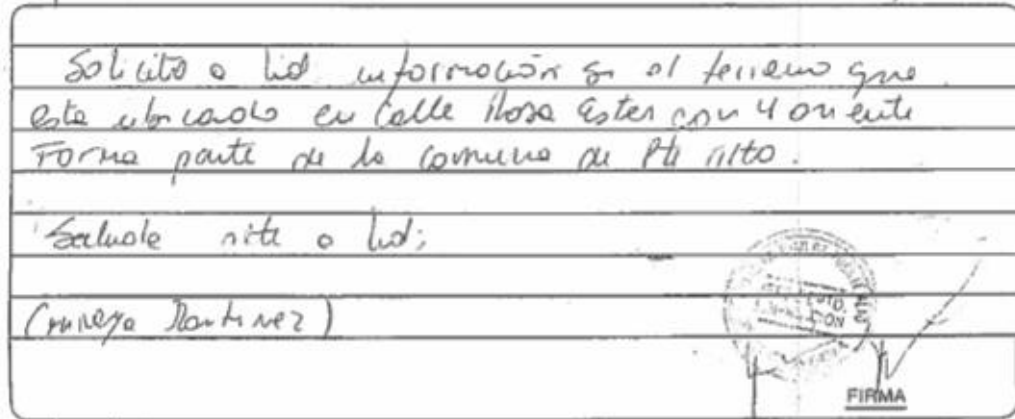 Solicito a Ud información si el terreno que
esta ubicado en Calle Rosa Ester con 4 oriente
Forma parte de la comuna de Pte Alto.
Saluda Atte a Ud;
(Mireya Martinez)
FIRMA